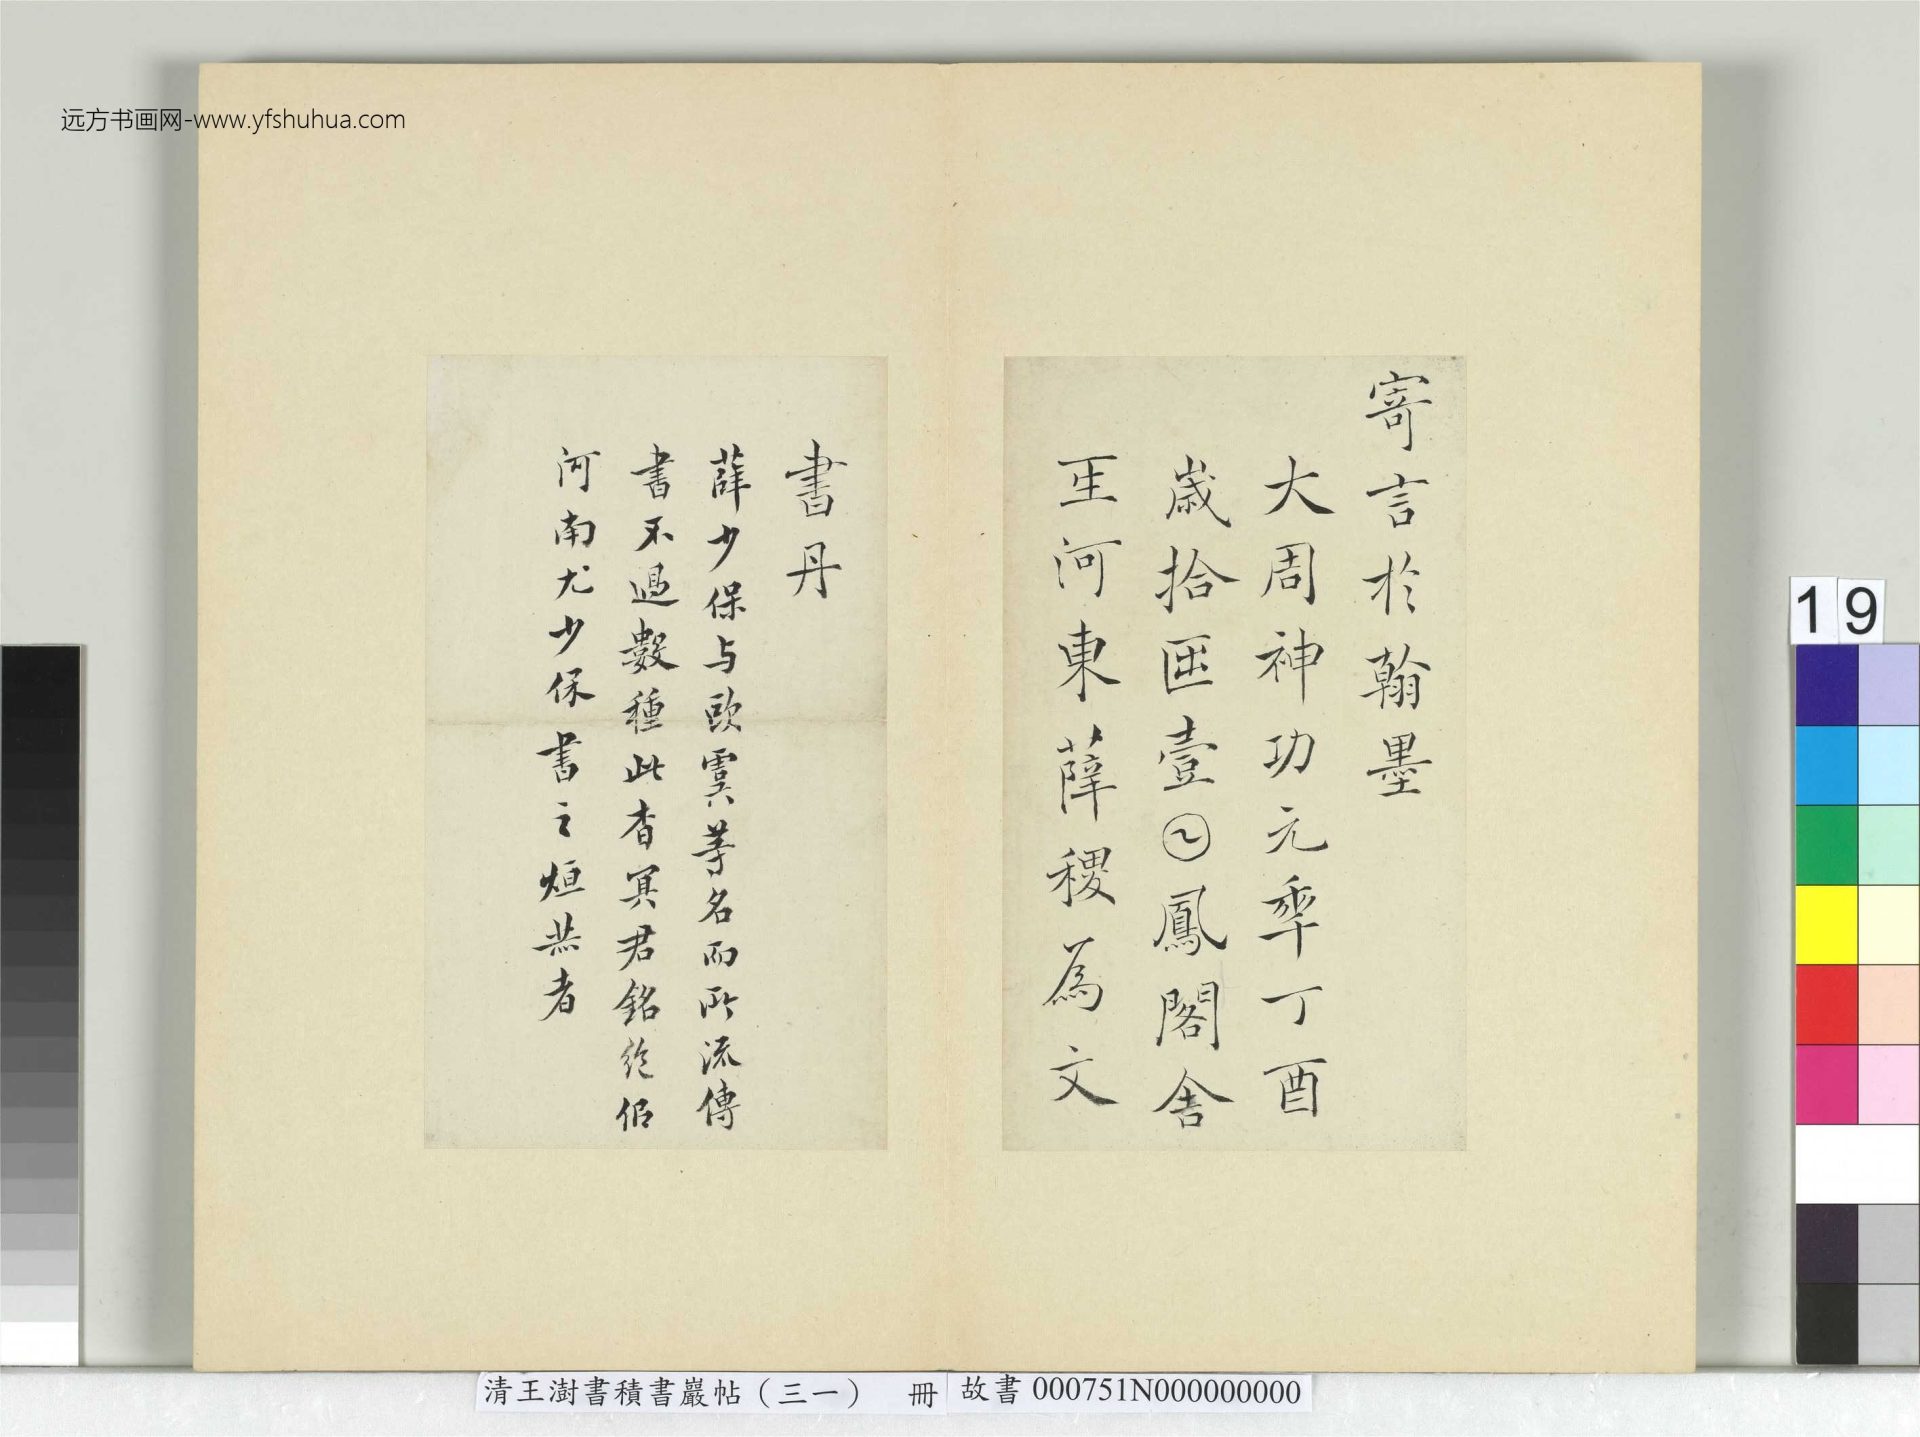 远方书画网-www.yfshuhua.com
寄言於翰墨
大周神功元𠡦丁酉
歲拾𠥱壹𡆠鳳閣舍
𤯔河東薛稷為文
書丹
薛少保与歐虞等名而所流傳
書不過數種此杳冥君銘純佀
河南尤少保書之烜赫者
19
清王澍書積書巖帖（三一） 冊 故書 000751N000000000